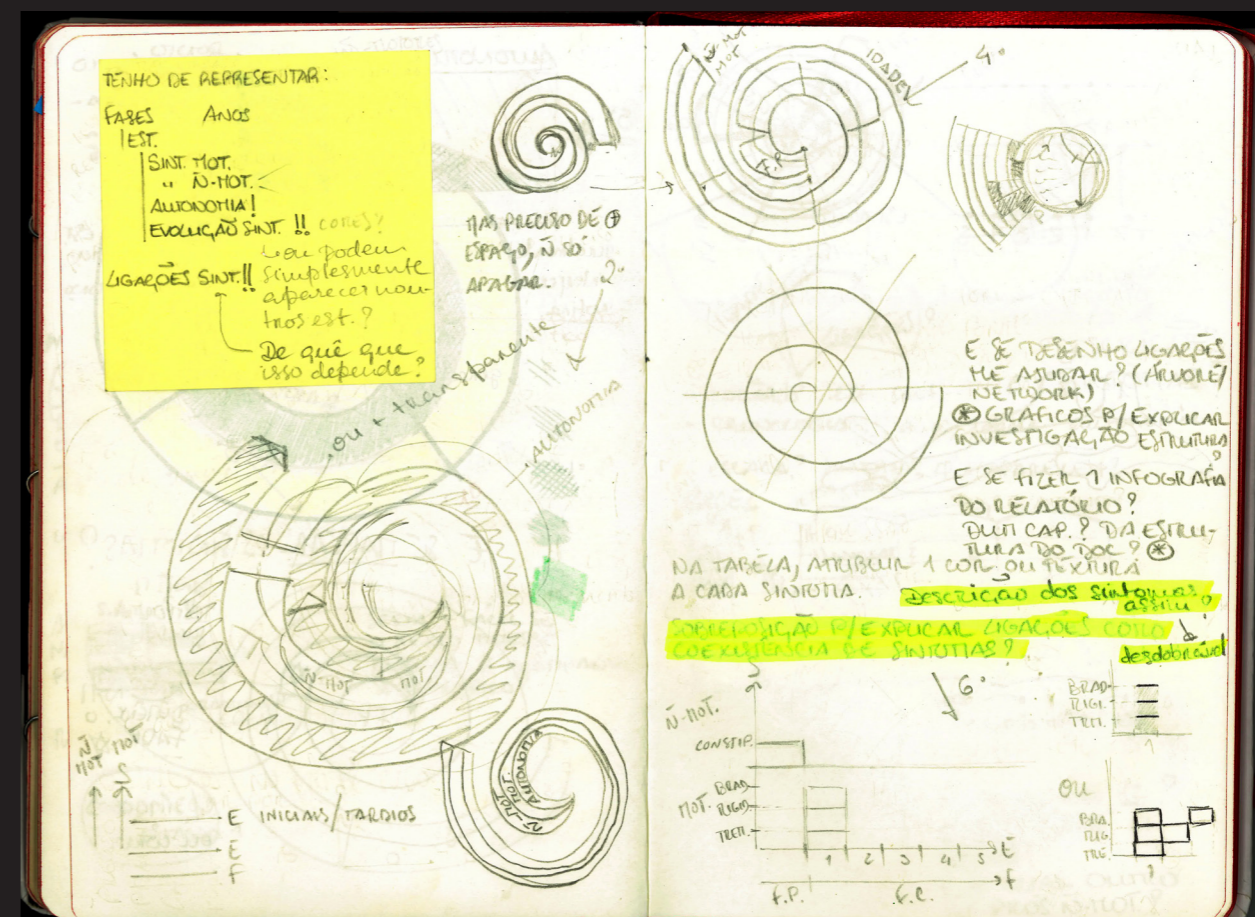 TENHO DE REPRESENTAR:
FASES ANOS
EST.
SINT. MOT.
" Ñ-MOT.
AUTONOMIA!
EVOLUÇÃO SINT. !! CORES?
ou podem
LIGAÇÕES SINT.!! simplesmente
aparecer nou-
tros est.?
De quê que
isso depende?
MAS PRECISO DE ⊕
ESPAÇO, Ñ SÓ
APAGAR.
2º
ou + transparente
AUTONOMIA
Ñ-MOT
MOT
Ñ-MOT.
MOT.
AUTONOMIA
Ñ MOT
MOT
E INICIAIS/TARDIOS
E
F
Ñ-MOT
MOT
IDADE
4º
F.P.
E SE DESENHO LIGAÇÕES
ME AJUDAR? (ÁRVORE/
NETWORK)
⊛ GRÁFICOS P/ EXPLICAR
INVESTIGAÇÃO ESTRUTURA
?
E SE FIZER 1 INFOGRAFIA
DO RELATÓRIO?
DUM CAP.? DA ESTRU-
TURA DO DOC? ⊛
NA TABELA, ATRIBUIR 1 COR OU TEXTURA
A CADA SINTOMA.
Descrição dos sintomas
assim?
SOBREPOSIÇÃO P/ EXPLICAR LIGAÇÕES COMO
COEXISTÊNCIA DE SINTOMAS?
desdobrável
6º
S
Ñ-MOT.
CONSTIP.
BRAD.
MOT. RIGID.
TREM.
1 2 3 4 5 E
F.P. F.C. f
BRAD.
RIGI.
TREM.
1
OU
BRA.
RIG.
TRE.
1